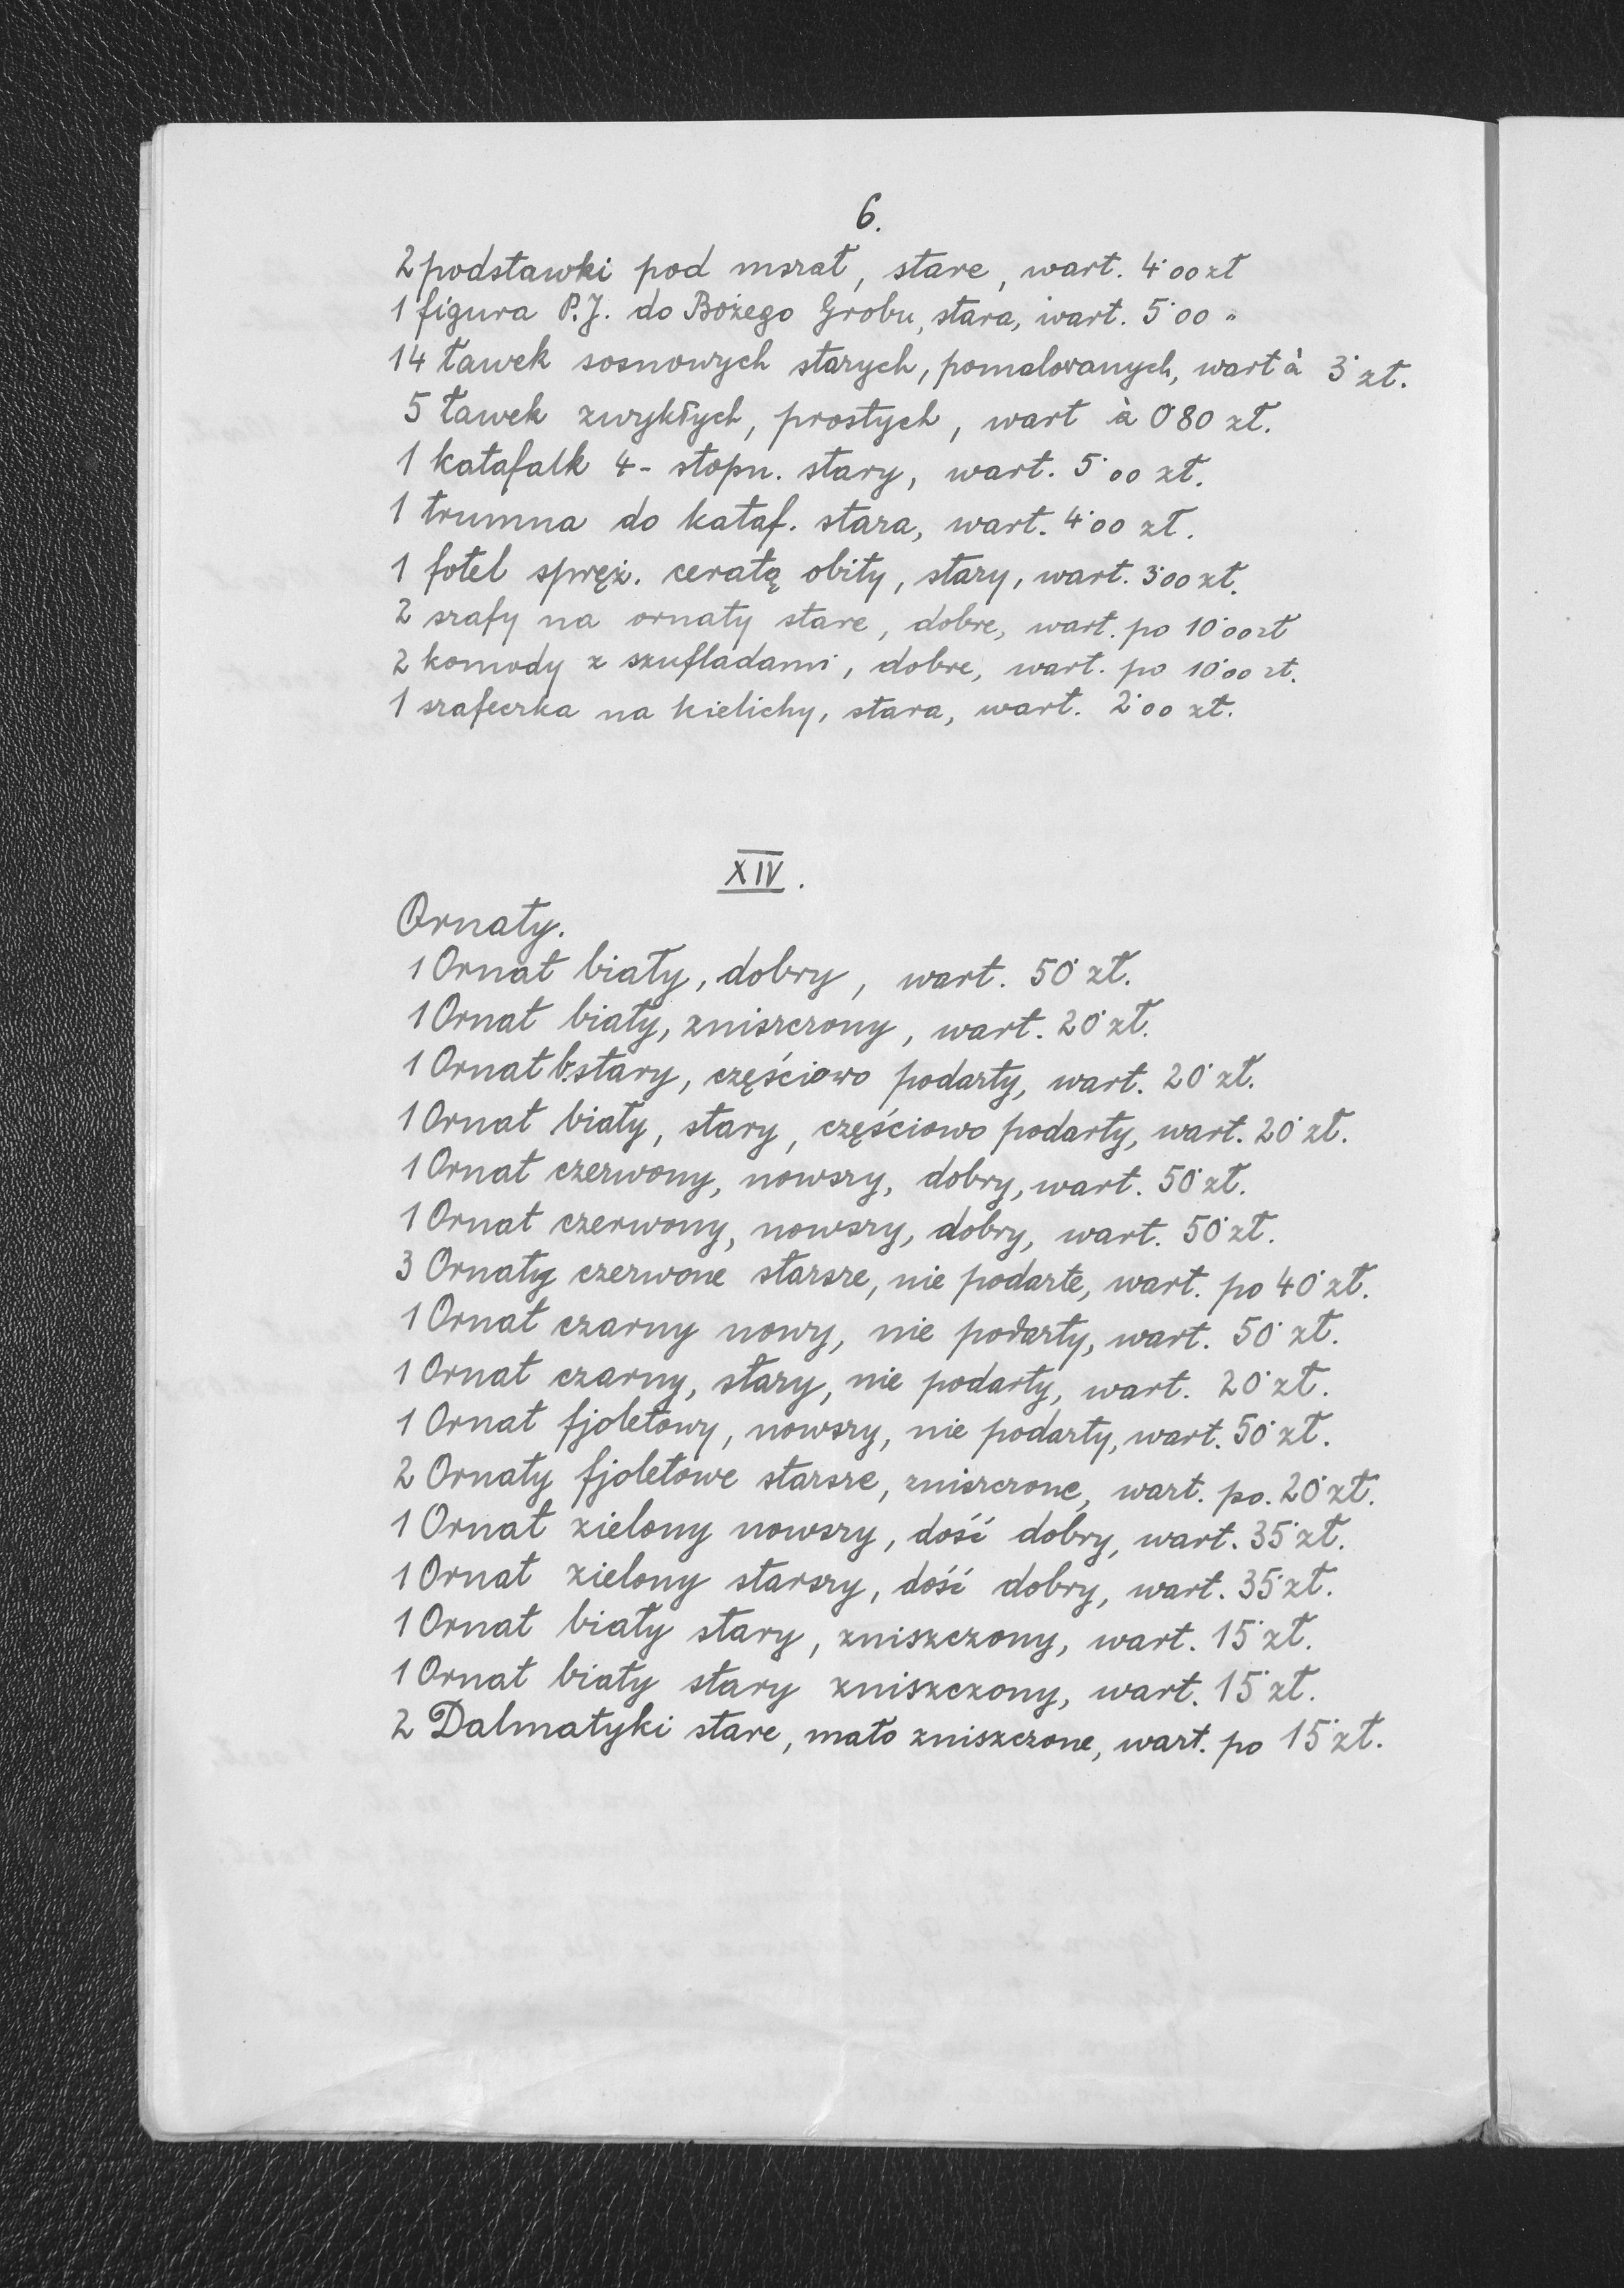 6.
2 podstawki pod mszał, stare, wart. 4˙00 zł
1 figura P.J. do Bożego Grobu, stara, wart. 5˙00 „
14 ławek sosnowych starych, pomalowanych, wart à 3˙ zł.
5 ławek zwykłych, prostych, wart à 0˙80 zł.
1 katafalk 4-stopn. stary, wart. 5˙00 zł.
1 trumna do kataf. stara, wart. 4˙00 zł.
1 fotel spręż. ceratą obity, stary, wart. 3˙00 zł.
2 szafy na ornaty stare, dobre, wart. po 10˙00 zł
2 komody z szufladami, dobre, wart. po 10˙00 zł.
1 szafeczka na kielichy, stara, wart. 2˙00 zł.
XIV.
Ornaty.
1 Ornat biały, dobry, wart. 50˙ zł.
1 Ornat biały, zniszczony, wart. 20˙ zł.
1 Ornat b. stary, częściowo podarty, wart. 20˙ zł.
1 Ornat biały, stary, częściowo podarty, wart. 20˙ zł.
1 Ornat czerwony, nowszy, dobry, wart. 50˙ zł.
1 Ornat czerwony, nowszy, dobry, wart. 50˙ zł.
3 Ornaty czerwone starsze, nie podarte, wart. po 40˙ zł.
1 Ornat czarny nowy, nie podarty, wart. 50˙ zł.
1 Ornat czarny, stary, nie podarty, wart. 20˙ zł.
1 Ornat fjoletowy, nowszy, nie podarty, wart. 50˙ zł.
2 Ornaty fjoletowe starsze, zniszczone, wart. po. 20˙ zł.
1 Ornat zielony nowszy, dość dobry, wart. 35˙ zł.
1 Ornat zielony starszy, dość dobry, wart. 35˙ zł.
1 Ornat biały stary, zniszczony, wart. 15˙ zł.
1 Ornat biały stary zniszczony, wart. 15˙ zł.
2 Dalmatyki stare, mało zniszczone, wart. po 15˙ zł.